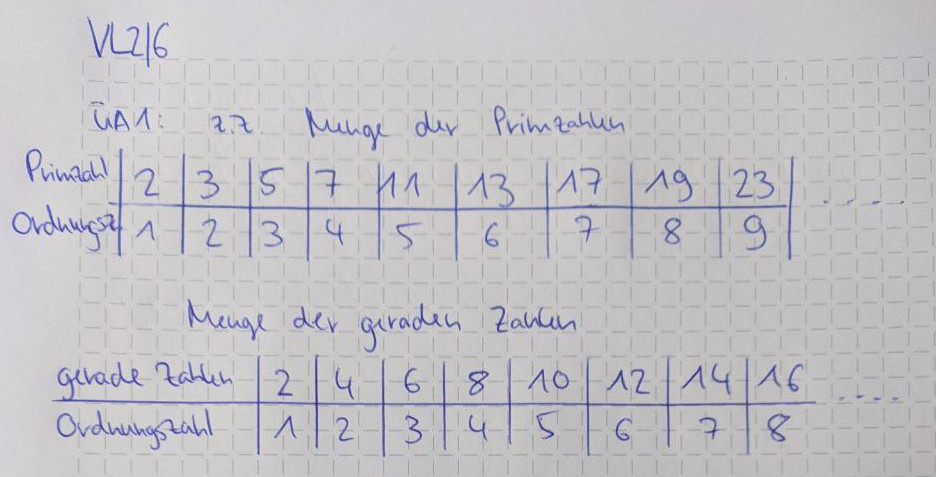 VL2/6
ÜA1: z.z Menge der Primzahlen
Primzahl 2 3 5 7 11 13 17 19 23 ....
Ordnungsz 1 2 3 4 5 6 7 8 9
Menge der geraden Zahlen
gerade Zahlen 2 4 6 8 10 12 14 16 ....
Ordnungszahl 1 2 3 4 5 6 7 8